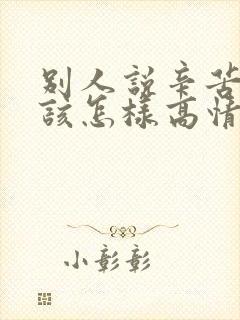 别人說辛苦
該怎樣高情
小彰彰